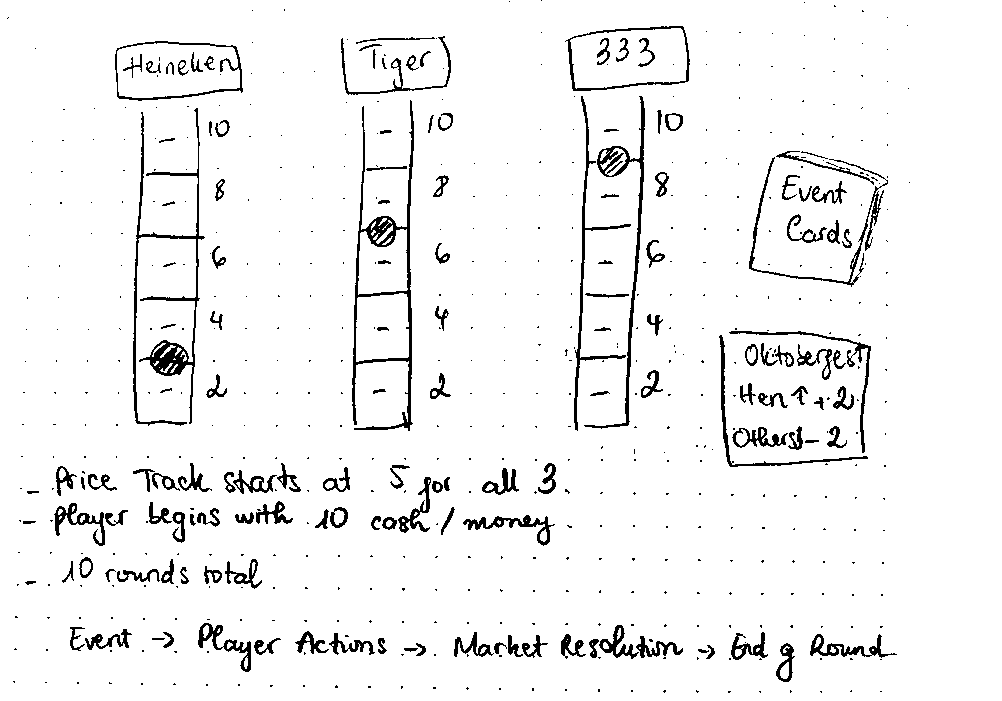 Heineken
Tiger
333
10
8
6
4
2
10
8
6
4
2
10
8
6
4
2
Event
Cards
Oktobergest
Hen ↑ + 2
Others ↓ - 2
- Price Track starts at 5 for all 3.
- player begins with 10 cash / money.
- 10 rounds total
Event → Player Actions → Market Resolution → End of Round